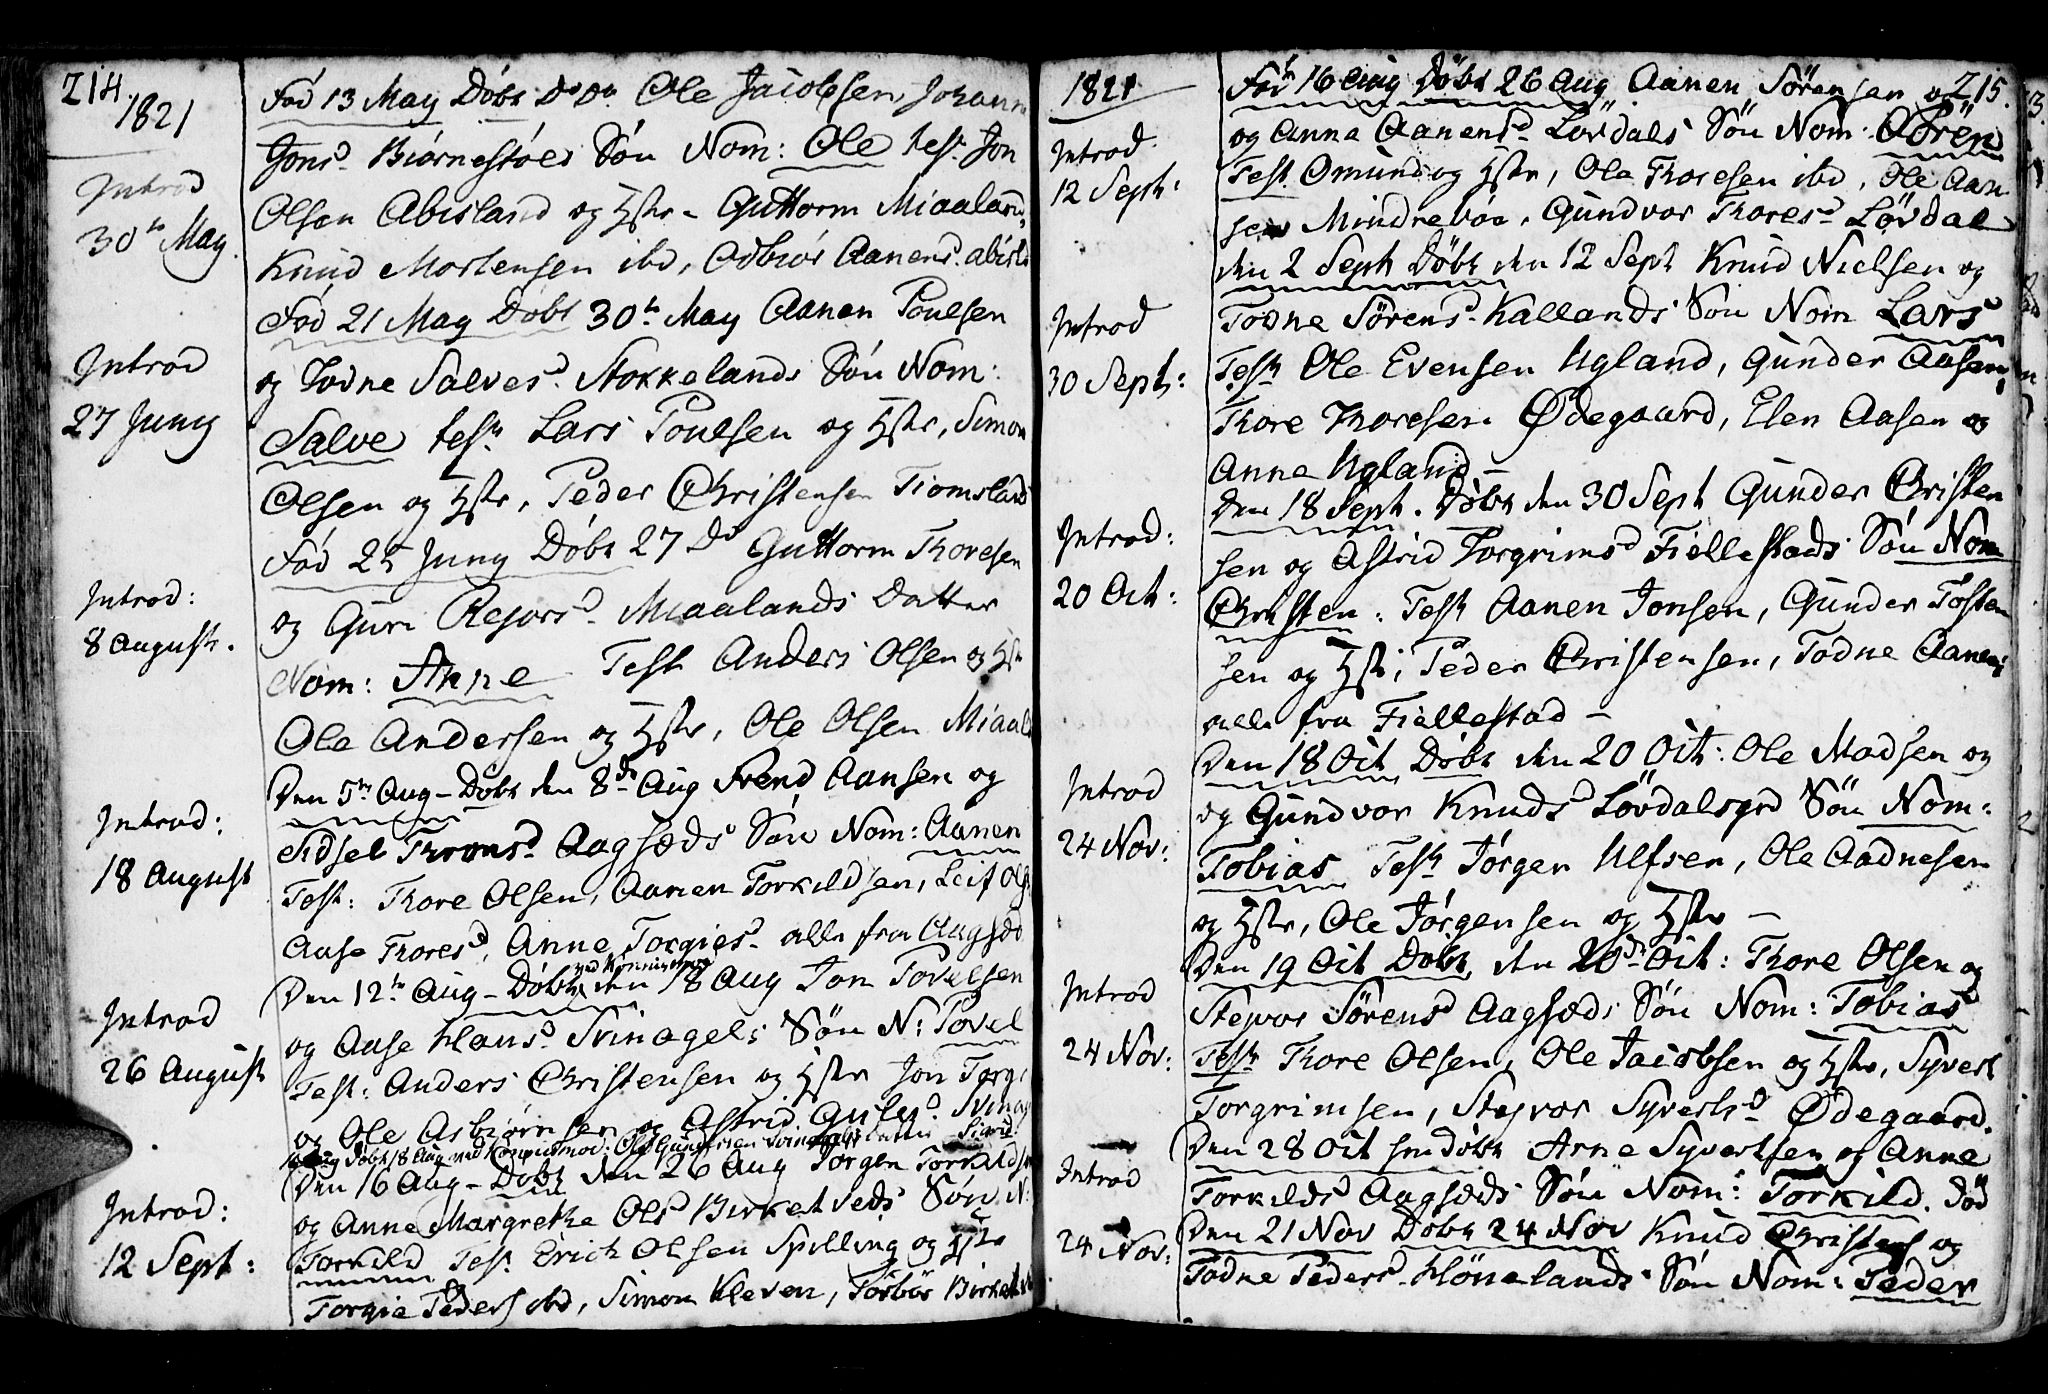 214.
1821
Introd
30te May.
Introd
27 Juny
Introd:
8 August.
Introd:
18 August
Introd
26 August
Introd:
12 Sept:
Fød 13 May Døbt Do Do Ole Jacobsen, Johann
Jonsd. Biørnestøls Søn Nom: Ole test. Jon
Olsen Abisland og Hstr. Guttorm Miaaland,
Knud Mortensen ibd, Odbiør Aanensd. abisl
Fød 21 May Døbt 30te May Aanen Poulsen
og Todne Salvesd. Stokkelands Søn Nom:
Salve test. Lars Poulsen og Hstr, Simon
Olsen og Hstr, Peder Christensen Tiomsland
Fød 25 Juny Døbt 27 Do Guttorm Thoresen
og Guri Rejorsd. Miaalands Datter
Nom: Anne Test Anders Olsen og Hstr
Ole Andersen og Hstr, Ole Olsen Miaal
Den 5te Aug - Døbt den 8de Aug Svend Aansen og
Sidsel Thronsd. Aagsæds Søn Nom: Aanen
Test: Thore Olsen, Aanen Torkildsen, Leif Ols
Aase Thoresd, Anne Torgiesd. alle fra Augsæd
Den 12te Aug - Døbt den 18 Aug Jon Povelsen
og Aase Hansd. Svinagels Søn N: Povel
Test: Anders Christensen og Hstr Jon Torgi
og Ole Asbiørnsen og Astrid Gulvsd. Svinag
Aug Døbt 18 Aug ved Konfirmod: Ole Gundersen Svinagels Datter Sigrid
Den 16 Aug - Døbt den 26 Aug Jørgen Torkilds
og Anne Margrethe Olsd Birketveds Søn N:
Torkild Test. Erich Olsen Spilling og Hstr
Torgie Peders ibd, Simon Kleven, Torbør Birketv
1821
215.
Introd
12 Sept:
Introd
30 Sept:
Introd:
20 Oct:
Introd
24 Nov:
Introd
24 Nov:
Introd
24 Nov:
Fød 16 Aug Døbt 26 Aug Aanen Sørensen og
og Anna Aanensd. Løvdals Søn Nom: Søren
Test. Omund og Hstr, Ole Thoresen ibd, Ole Aan
sen Mindrebøe, Gundvor Thoresd Løvdal
den 2 Sept Døbt den 12 Sept Knud Nielsen og
Todne Sørensd. Kallands Søn Nom Lars
Test Ole Evensen Ugland, Gunder Aasen,
Thore Thoresen Ødegaard, Elen Aasen og
Anne Ugland -
Den 18 Sept. Døbt den 30 Sept Gunder Christen
sen og Astrid Torgrimsd Fiellestads Søn Nom
Christen: Test Aanen Jonsen, Gunder Tosten
sen og Hstr, Peder Christensen, Todne Aanens
alle fra Fiellestad -
Den 18 Oct Døbt den 20 Oct: Ole Madsen og
og Gundvor Knudsd Løvdalsgrd Søn Nom:
Tobias Test Jørgen Ulfsen, Ole Aadnesen
og Hstr, Ole Jørgensen og Hstr -
Den 19 Oct Døbt den 20de Oct: Thore Olsen og
Stejvor Sørensd Aagsæds Søn Nom: Tobias
Test Thore Olsen, Ole Jacobsen og Hstr, Syvert
Torgrimsen, Stejvor Syvertsd Ødegaard.
Den 28 Oct Arne Syvertsen og Anne
Torkildsd Aagsæds Søn Nom: Torkild. død
Den 21 Nov Døbt 24 Nov Knud Christens og
Todne Pedersd. Hønelands Søn Nom: Peder